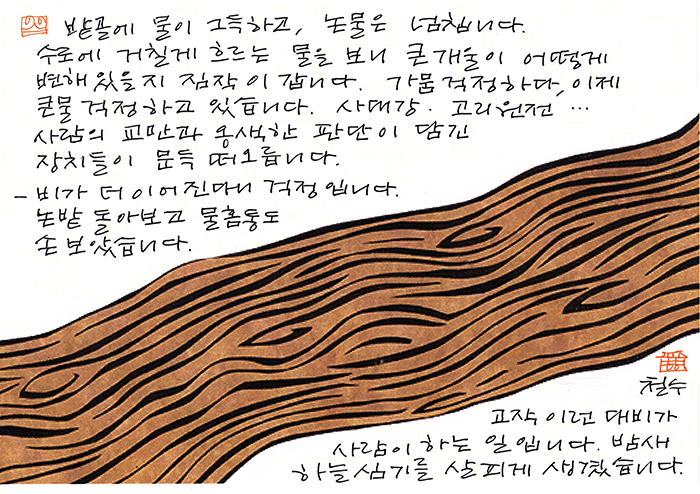 밭골에 물이 그득하고, 논물은 넘칩니다.
수로에 거칠게 흐르는 물을 보니 큰개울이 어떻게
변해있을지 짐작이 갑니다. 가뭄 걱정하다, 이제
큰물 걱정하고 있습니다. 사대강· 고리원전 …
사람의 교만과 옹색한 판단이 담긴
장치들이 문득 떠오릅니다.
– 비가 더 이어진다니 걱정입니다.
논밭 돌아보고 물홈통도
손 보았습니다.
철수
고작 이런 대비가
사람이 하는 일입니다. 밤새
하늘 심기를 살피게 생겼습니다.